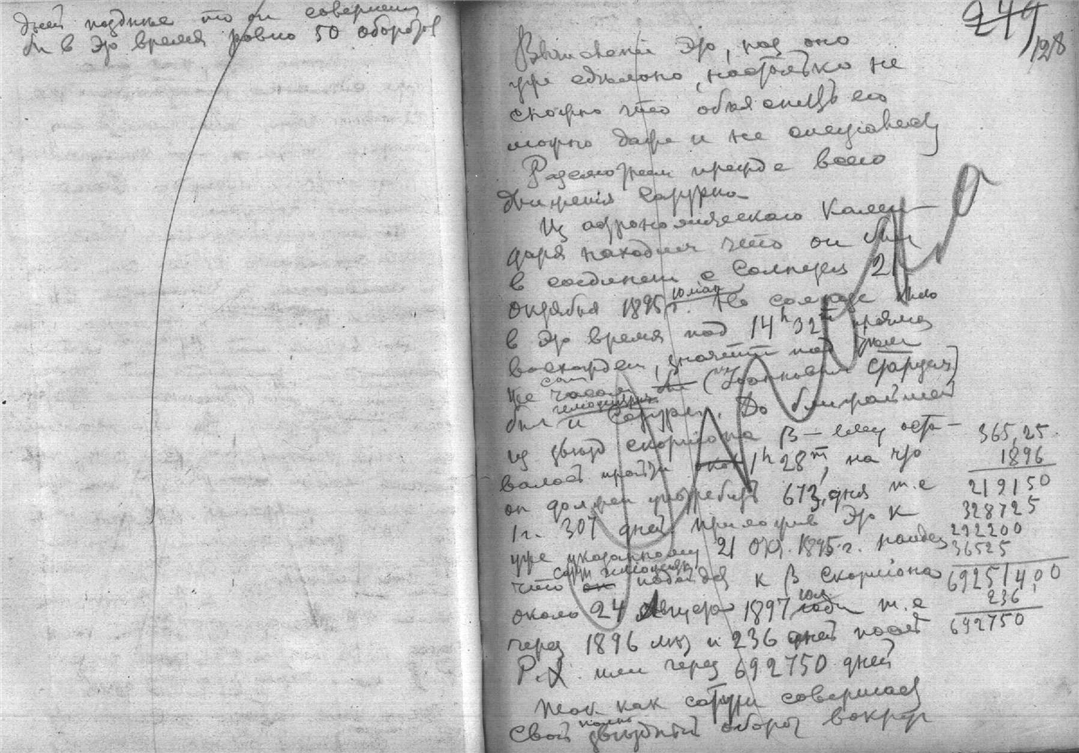 дней позднѣе то он совершил
бы в это время ровно 50 оборотов
249
128
Вычисленiе это, раз оно
уже сдѣлано, настолько не
сложно что объяснить его
можно даже и не спецiалисту
Разсмотрим прежде всего
движенiя Сатурна
Из астрономическаго Кален-
даря находим что он был
в соединенiи с Солнцем 21
октября 1895 г. Но солнце было
в это время под 14ʰ 32ᵐ прямого
восхожденiя, значит под
же часом
был и Сатурн. До ближайшей
из звѣзд скорпiона β — ему оста-
валось пройти 1ʰ 28ᵐ, на что
он должен употребить 673 дня т.е
1 г. 307 дней приложив это к
уже указанному 21 окт. 1895 г. найдем
что Сатурн подойдет к β Скорпiона
около 24 1897 года т.е
через 1896 лѣт и 236 дней послѣ
Р. Х. или через 692750 дней
Так как сатурн совершает
свой полный звѣздный оборот вокруг
365,25
1896
219150
328725
292200
36525
692514,00
236
692750
ВАЖНО